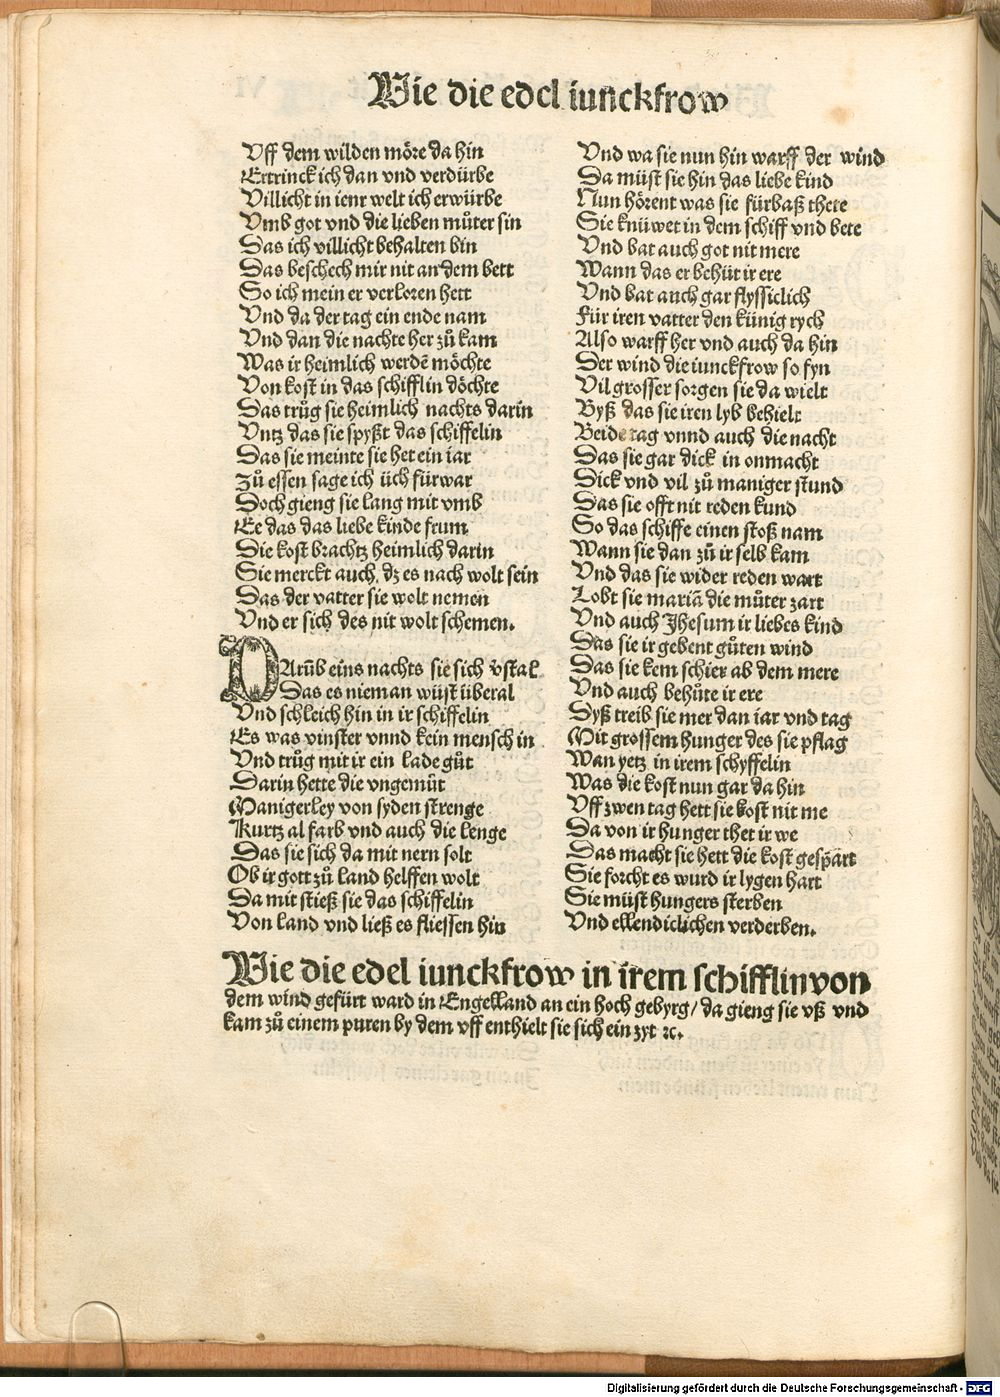 Wie die edel iunckfrow
Vff dem wilden möre da hin
Ertrinck ich dan vnd verdürbe
Villicht in ienr welt ich erwürbe
Vmb got vnd die lieben můter sin
Das ich villicht behalten bin
Das beschech mir nit an dem bett
So ich mein er verloren hett
Vnd da der tag ein ende nam
Vnd dan die nachte her zů kam
Was ir heimlich werdē möchte
Von kost in das schifflin döchte
Das trůg sie heimlich nachts darin
Vntz das sie spyßt das schiffelin
Das sie meinte sie het ein iar
Zů essen sage ich üch fürwar
Doch gieng sie lang mit vmb
Ee das das liebe kinde frum
Die kost brachtz heimlich darin
Sie merckt auch dz es nach wolt sein
Das der vatter sie wolt nemen
Vnd er sich des nit wolt schemen.
DArūb eins nachts sie sich vstal
Das es nieman wüst überal
Vnd schleich hin in ir schiffelin
Es was vinster vnnd kein mensch in
Vnd trůg mit ir ein lade gůt
Darin hette die vngemůt
Manigerley von syden strenge
Kurtz al farb vnd auch die lenge
Das sie sich da mit nern solt
Ob ir gott zů land helffen wolt
Da mit stieß sie das schiffelin
Von land vnd ließ es fliessen hin
Vnd wa sie nun hin warff der wind
Da müst sie hin das liebe kind
Nun hörent was sie fürbaß thete
Sie knüwet in dem schiff vnd bete
Vnd bat auch got nit mere
Wann das er behüt ir ere
Vnd bat auch gar flyssiclich
Für iren vatter den künig rych
Also warff her vnd auch da hin
Der wind die iunckfrow so fyn
Vil grosser sorgen sie da wielt
Byß das sie iren lyb behielt
Beide tag vnnd auch die nacht
Das sie gar dick in onmacht
Dick vnd vil zů maniger stund
Das sie offt nit reden kund
So das schiffe einen stoß nam
Wann sie dan zů ir selb kam
Vnd das sie wider reden wart
Lobt sie mariā die můter zart
Vnd auch Jhesum ir liebes kind
Das sie ir gebent gůten wind
Das sie kem schier ab dem mere
Vnd auch behůte ir ere
Dyß treib sie mer dan iar vnd tag
Mit grossem hunger des sie pflag
Wan yetz in irem schyffelin
Was die kost nun gar da hin
Vff zwen tag hett sie kost nit me
Da von ir hunger thet ir we
Das macht sie hett die kost gespart
Sie forcht es wurd ir lygen hart
Sie müst hungers sterben
Vnd ellendiclichen verderben.
Wie die edel iunckfrow in irem schifflin von
dem wind gefürt ward in Engelland an ein hoch gebyrg/ da gieng sie vß vnd
kam zů einem puren by dem vff enthielt sie sich ein zyt ꝛc.
Digitalisierung gefördert durch die Deutsche Forschungsgemeinschaft - DFG